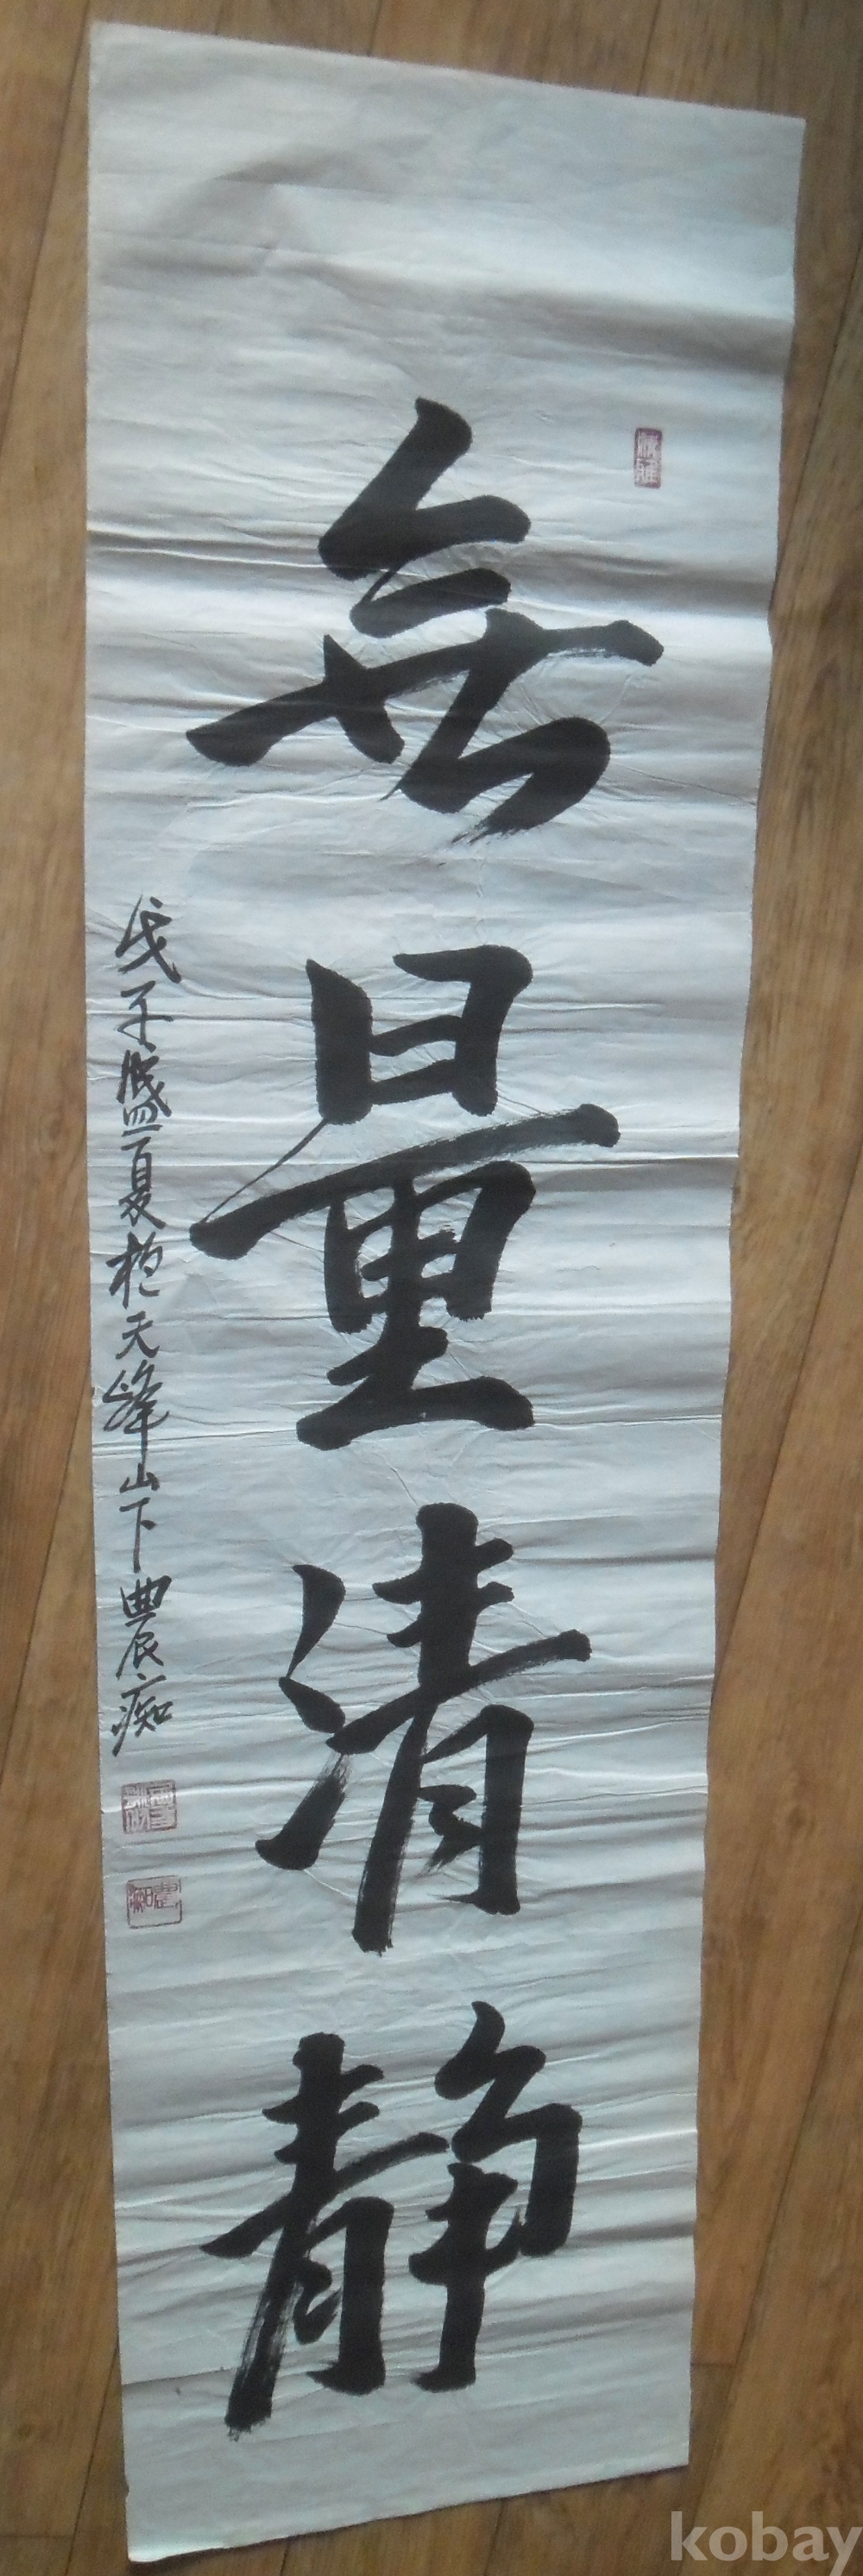 無量清静
戊子盛夏於天峰山下農痴
kobay